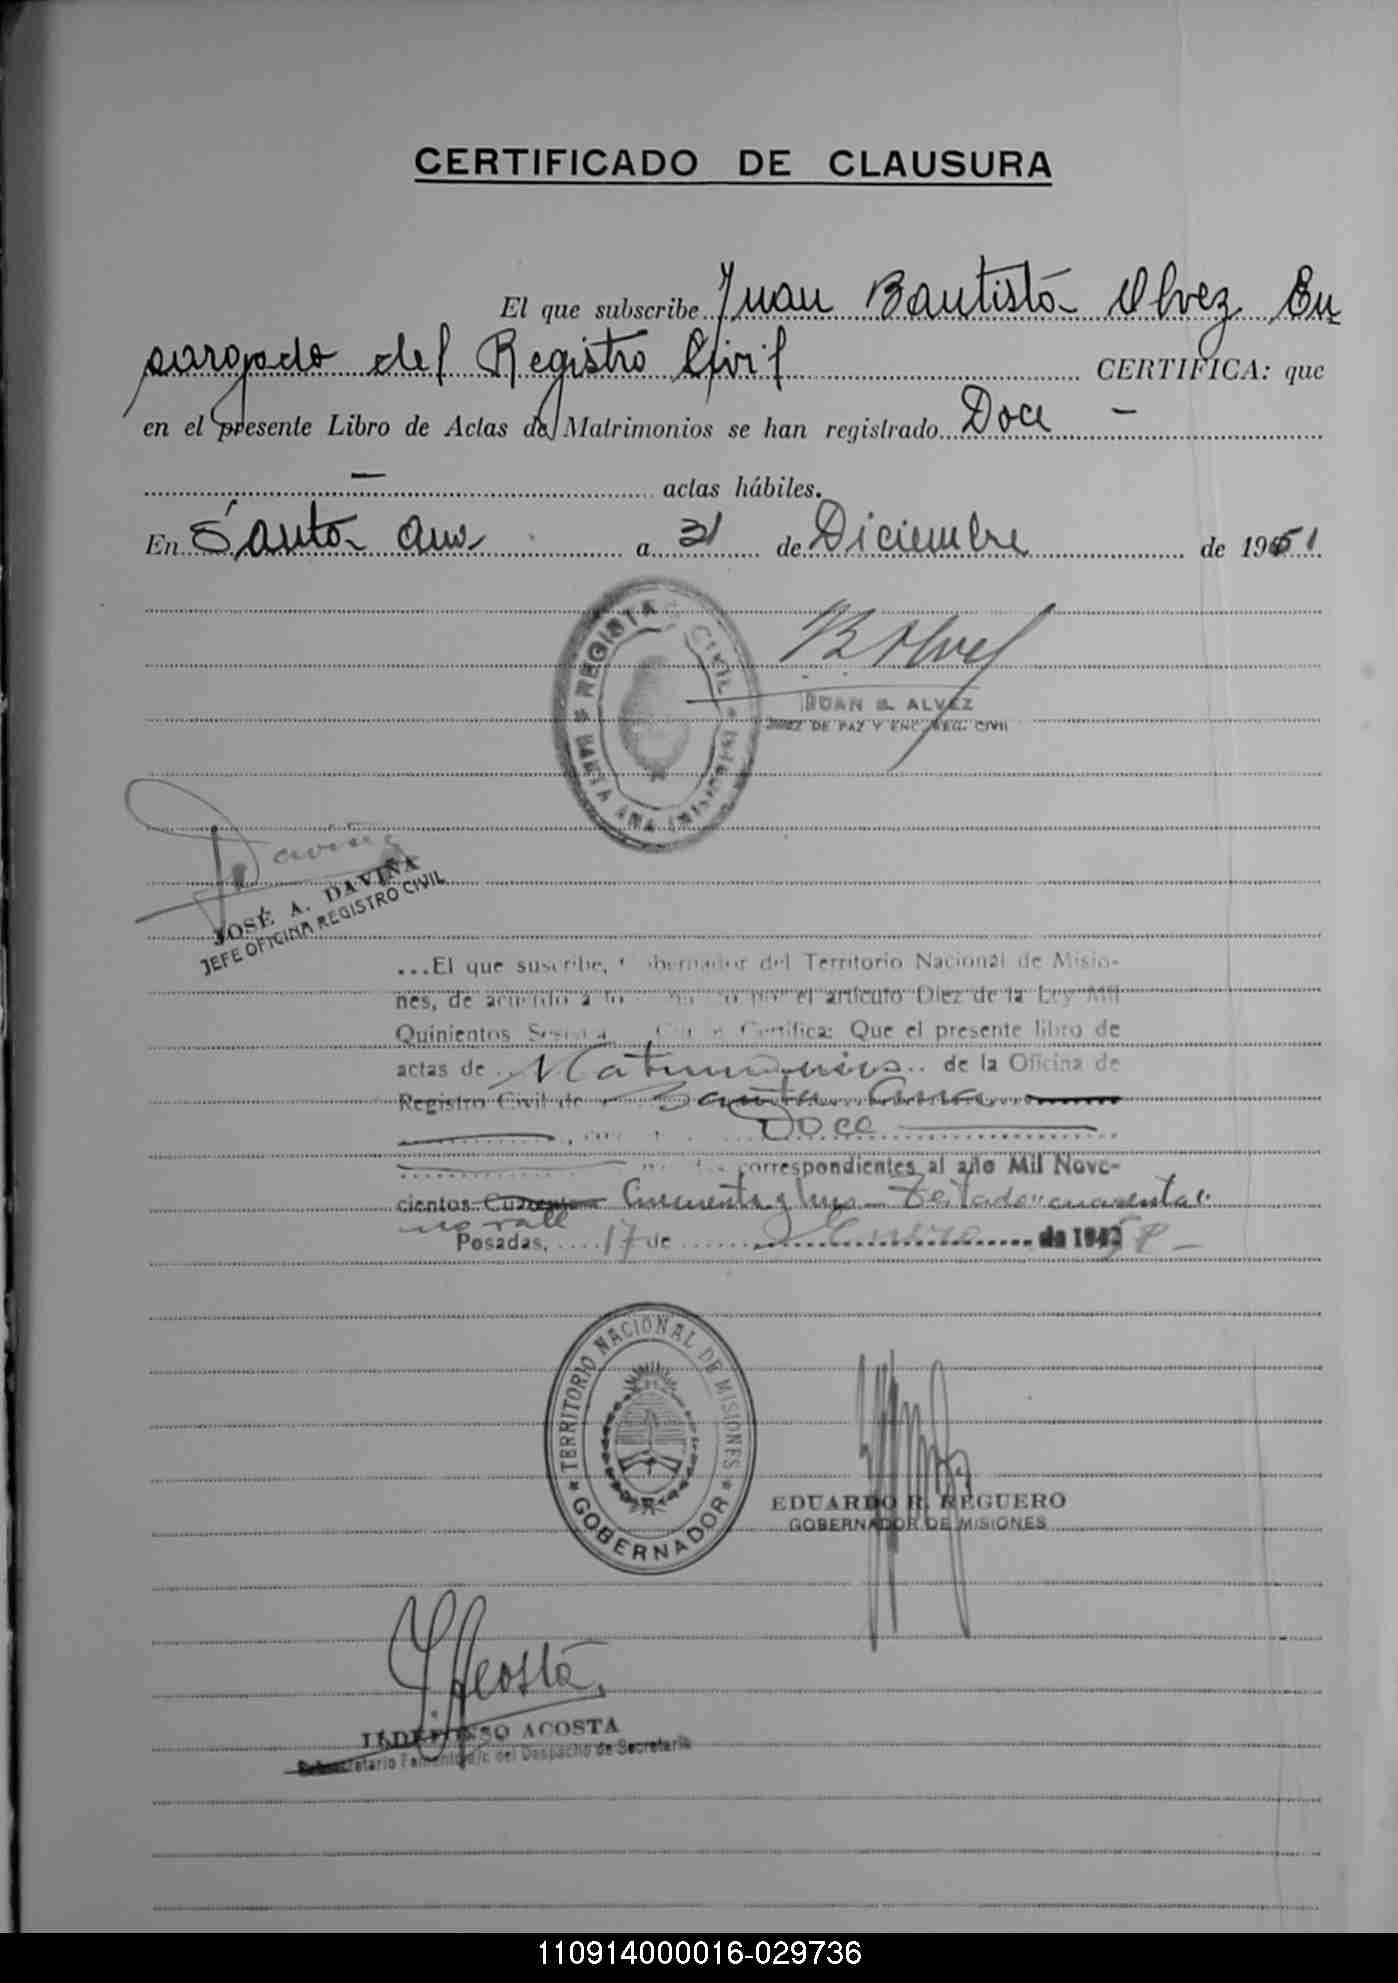 CERTIFICADO DE CLAUSURA
El que subscribe Juan Bautista Alvez En
cargado del Registro Civil CERTIFICA: que
en el presente Libro de Actas de Matrimonios se han registrado Doce —
— actas hábiles.
En Santa Ana a 31 de Diciembre de 1951
REGISTRO CIVIL
SANTA ANA (MISIONES)
B Alvez
JUAN B. ALVEZ
JUEZ DE PAZ Y ENC. REG. CIVIL
Daviña
JOSÉ A. DAVIÑA
JEFE OFICINA REGISTRO CIVIL
...El que suscribe, Gobernador del Territorio Nacional de Misio-
nes, de acuerdo a lo por el artículo Diez de la Ley Mil
Quinientos Certifica: Que el presente libro de
actas de Matrimonios de la Oficina de
Registro Civil de Santa Ana
Doce
correspondientes al año Mil Nove-
cientos Cuarenta Cincuenta y uno Testado: "cuarenta":
no vale
Posadas, 17 de Enero de 194
TERRITORIO NACIONAL DE MISIONES
GOBERNADOR
EDUARDO R. REGUERO
GOBERNADOR DE MISIONES
Y Acosta
ILDEFONSO ACOSTA
del Despacho de Secretaría
110914000016-029736